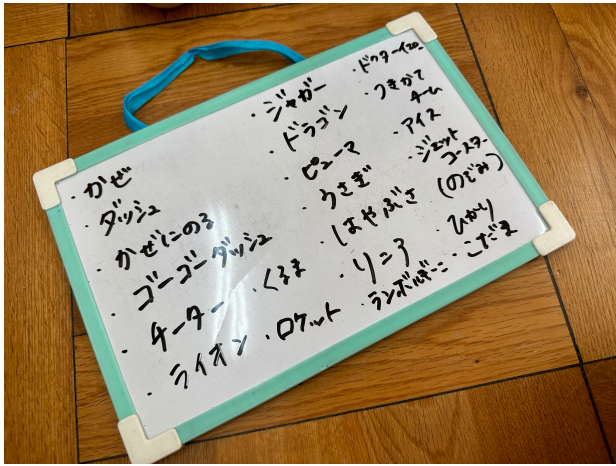 ・かぜ
・ダッシュ
・かぜにのる
・ゴーゴーダッシュ
・チーター
・ライオン
・くるま
・ロケット
・ジャガー
・ドラゴン
・ピューマ
・うさぎ
・はやぶさ
・りニア
・ランボルギーニ
・ドクターイエロー
・つきがて
チーム
・アイス
・ジェット
コースター
(のぞみ)
・ひかり
・こだま